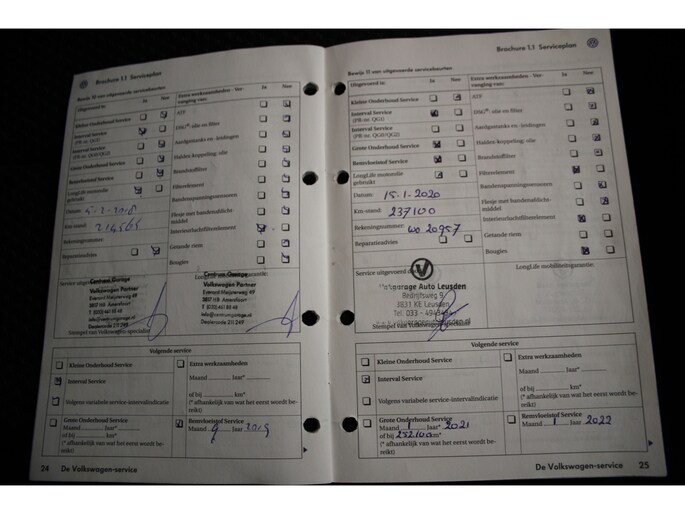 Brochure 1.1 Serviceplan
Bewijs 10 van uitgevoerde servicebeurten
Uitgevoerd is: Ja Nee
Kleine Onderhoud Service
Interval Service
(PR-nr. QG1)
Interval Service
(PR-nr. QG0/QG2)
Grote Onderhoud Service
Remvloeistof Service
LongLife motorolie
gebruikt
Datum:
Km-stand:
Rekeningnummer:
Reparatieadvies
Extra werkzaamheden - Ver-
vanging van: Ja Nee
ATF
DSG®: olie en filter
Aardgastanks en -leidingen
Haldex koppeling: olie
Brandstoffilter
Filterelement
Bandenspanningssensoren
Flesje met bandenafdicht-
middel
Interieurluchtfilterelement
Getande riem
Bougies
Service uitgevoerd door:
LongLife mobiliteitsgarantie:
Centrum Garage
Volkswagen Partner
Dealercode 211 249
Centrum Garage
Volkswagen Partner
3817 HB Amersfoort
Dealercode 211 249
Stempel van Volkswagen-specialist
Volgende service
Kleine Onderhoud Service
Interval Service
Volgens variabele service-intervalindicatie
Extra werkzaamheden
Maand ........ Jaar* ........
of bij ........ km*
(* afhankelijk van wat het eerst wordt be-
reikt)
Grote Onderhoud Service
Maand ........ Jaar* ........
of bij ........ km*
(* afhankelijk van wat het eerst wordt be-
reikt)
Remvloeistof Service
Maand Jaar 2019
24 De Volkswagen-service
Brochure 1.1 Serviceplan
Bewijs 11 van uitgevoerde servicebeurten
Uitgevoerd is: Ja Nee
Kleine Onderhoud Service
Interval Service
(PR-nr. QG1)
Interval Service
(PR-nr. QG0/QG2)
Grote Onderhoud Service
Remvloeistof Service
LongLife motorolie
gebruikt
Datum: 15-1-2020
Km-stand: 237100
Rekeningnummer: WO 20957
Reparatieadvies
Extra werkzaamheden - Ver-
vanging van: Ja Nee
ATF
DSG®: olie en filter
Aardgastanks en -leidingen
Haldex koppeling: olie
Brandstoffilter
Filterelement
Bandenspanningssensoren
Flesje met bandenafdicht-
middel
Interieurluchtfilterelement
Getande riem
Bougies
Service uitgevoerd door:
LongLife mobiliteitsgarantie:
Vakgarage Auto Leusden
Bedrijfsweg 9
3831 KE Leusden
Stempel van Volkswagen-specialist
Volgende service
Kleine Onderhoud Service
Interval Service
Volgens variabele service-intervalindicatie
Extra werkzaamheden
Maand ........ Jaar* ........
of bij ........ km*
(* afhankelijk van wat het eerst wordt be-
reikt)
Grote Onderhoud Service
Maand 1 Jaar* 2021
of bij 252100 km*
(* afhankelijk van wat het eerst wordt be-
reikt)
Remvloeistof Service
Maand 1 Jaar 2022
De Volkswagen-service 25